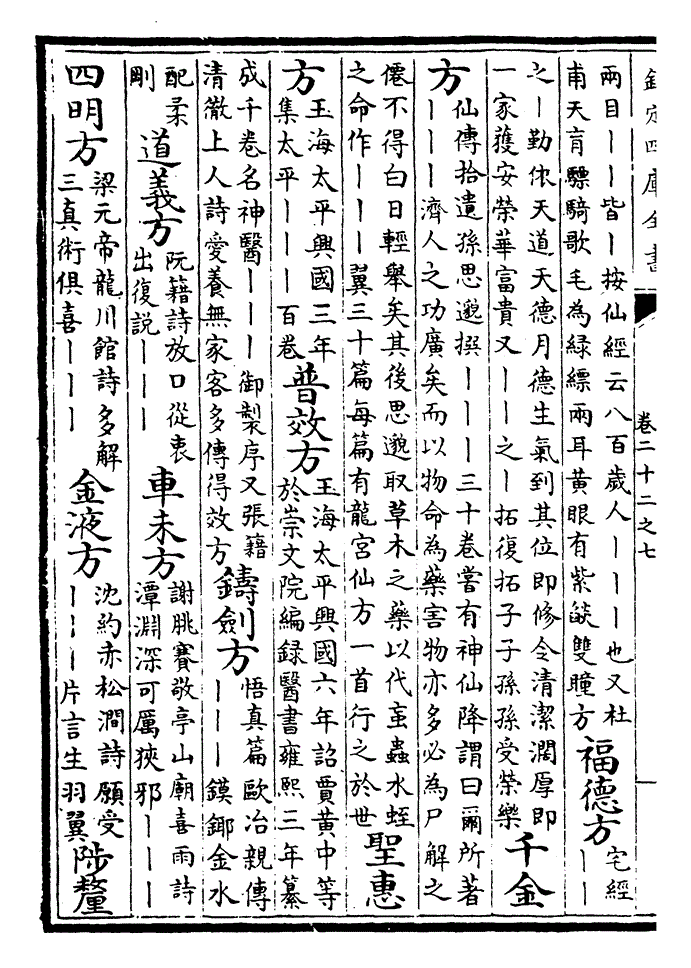 欽定四庫全書
卷二十二之七
兩目｜｜皆｜按仙經云八百歲人｜｜｜也又杜
甫天育驃騎歌毛為緑縹兩耳黃眼有紫燄雙瞳方
福德方
宅經
｜｜
之｜勤依天道天德月德生氣到其位即修令清潔濶厚即
一家獲安榮華富貴又｜｜之｜拓復拓子子孫孫受榮樂
千金
方
仙傳拾遺孫思邈撰｜｜｜三十卷嘗有神仙降謂曰爾所著
｜｜｜濟人之功廣矣而以物命為藥害物亦多必為尸解之
僊不得白日輕舉矣其後思邈取草木之藥以代䖟蟲水蛭
之命作｜｜｜翼三十篇每篇有龍宮仙方一首行之於世
聖惠
方
玉海太平興國三年
集太平｜｜｜百卷
普效方
玉海太平興國六年詔賈黃中等
於崇文院編錄醫書雍熙三年纂
成千卷名神醫｜｜｜御製序又張籍
清徹上人詩愛養無家客多傳得效方
鑄劍方
悟真篇歐冶親傳
｜｜｜鏌鎁金水
配柔
剛
道義方
阮籍詩放口從衷
出復説｜｜｜
車未方
謝朓賽敬亭山廟喜雨詩
潭淵深可厲狹邪｜｜｜
四明方
梁元帝龍川館詩多解
三真術俱喜｜｜｜
金液方
沈約赤松澗詩願受
｜｜｜片言生羽翼
陟釐